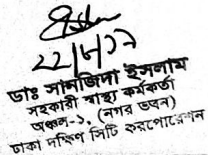 ২২/৮/১৭
ডাঃ সানজিদা ইসলাম
সহকারী স্বাস্থ্য কর্মকর্তা
অঞ্চল-১, (নগর ভবন)
ঢাকা দক্ষিণ সিটি করপোরেশন